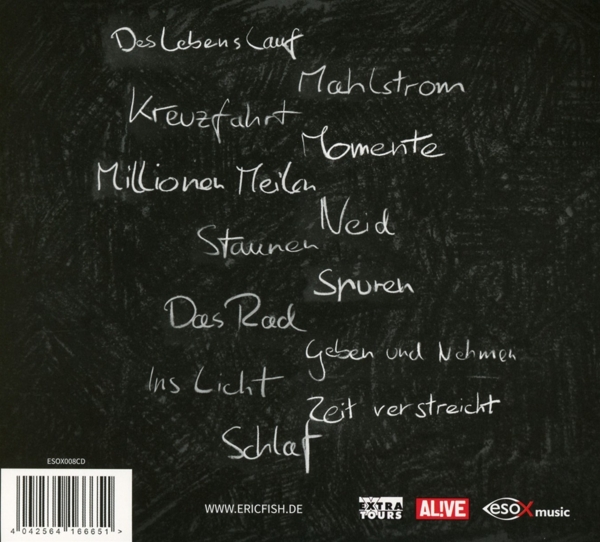 Des Lebens Lauf
Mahlstrom
Kreuzfahrt
Momente
Millionen Meilen
Neid
Staunen
Spuren
Das Rad
Geben und Nehmen
Ins Licht
Zeit verstreicht
Schlaf
ESOX008CD
4 042564 166651 >
WWW.ERICFISH.DE
EXTRA TOURS
AL!VE
esoX music